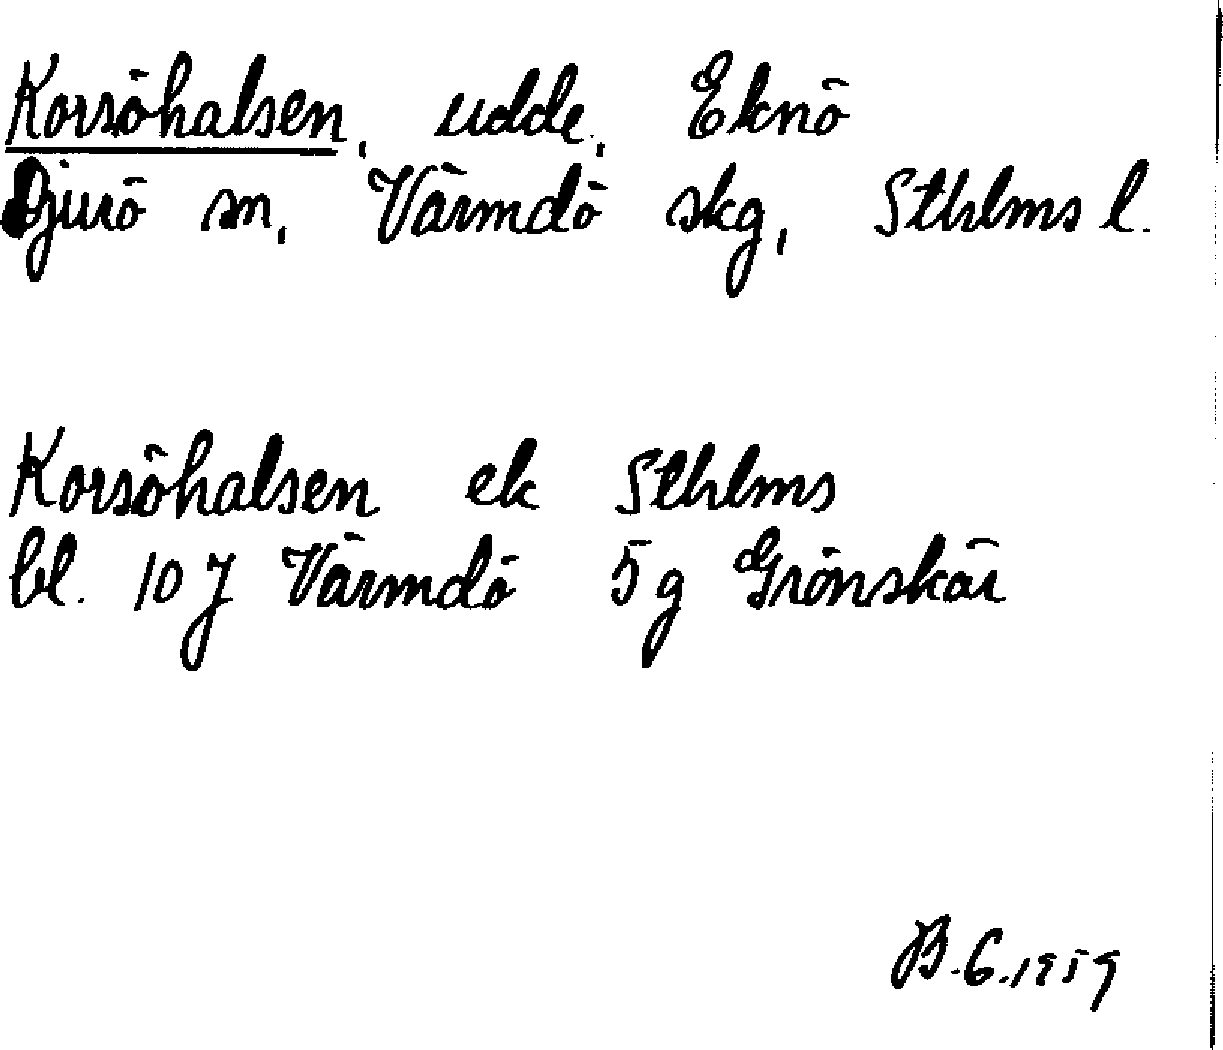 Korsöhalsen, udde, Eknö
Djurö sn, Värmdö skg, Sthlms l.
Korsöhalsen ek Sthlms
bl. 10 J Värmdö 5 g Grönskär
B.G. 1959